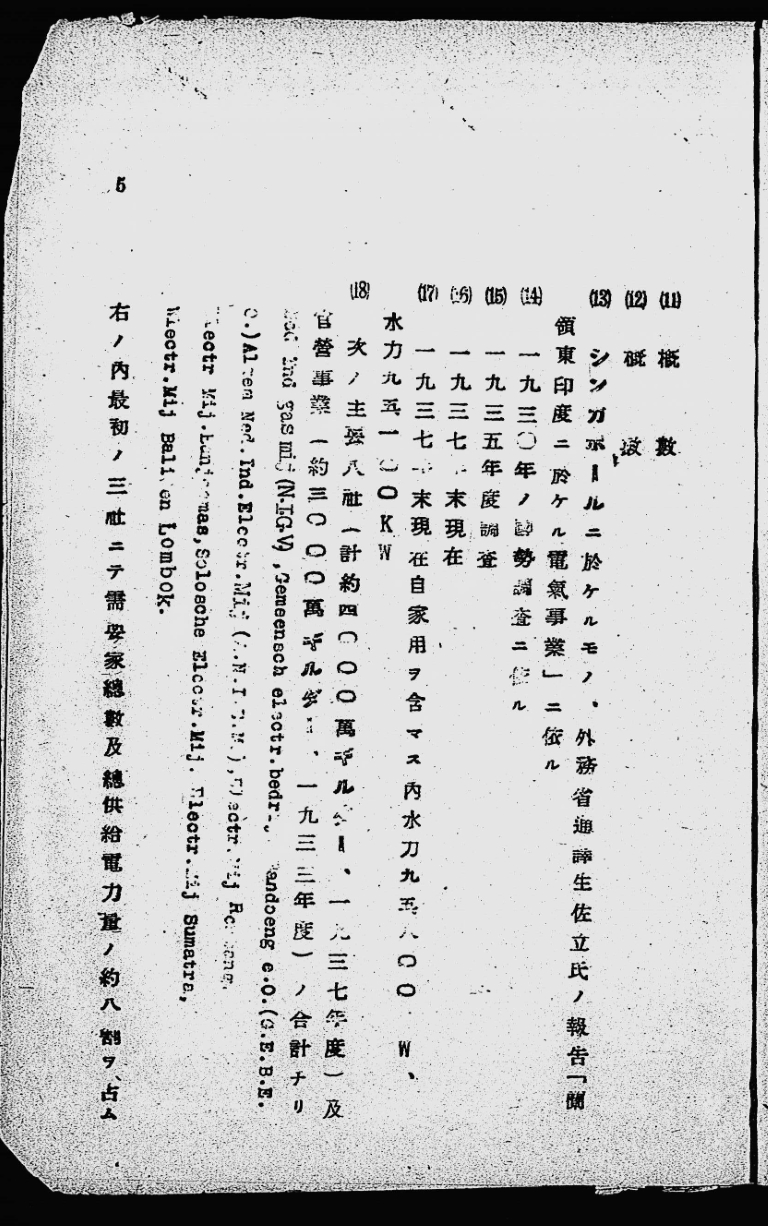 (11) 概數
(12) 概數
(13) シンガポールニ於ケルモノ、外務省通譯生佐立氏ノ報告「蘭
領東印度ニ於ケル電氣事業」ニ依ル
(14) 一九三〇年ノ國勢調査ニ依ル
(15) 一九三五年度調査
(16) 一九三七年末現在
(17) 一九三七年末現在自家用ヲ含マス內水力九五八〇〇 W、
水力九五一〇〇KW
(18) 次ノ主要八社(計約四〇〇〇萬ギルダー、一九三七年度)及
官營事業(約三〇〇〇萬ギルダー、一九三三年度)ノ合計ナリ
Ind gas mij (N.I.G.V), Gemeensch electr.bedr. andoeng e.O.(G.E.B.E.
O.) Ned.Ind.Electr.Mij
Electr Mij. Solosche Electr.Mij. Electr.Mij Sumatra,
Electr.Mij Bali en Lombok.
右ノ內最初ノ三社ニテ需要家總數及總供給電力量ノ約八割ヲ占ム
5